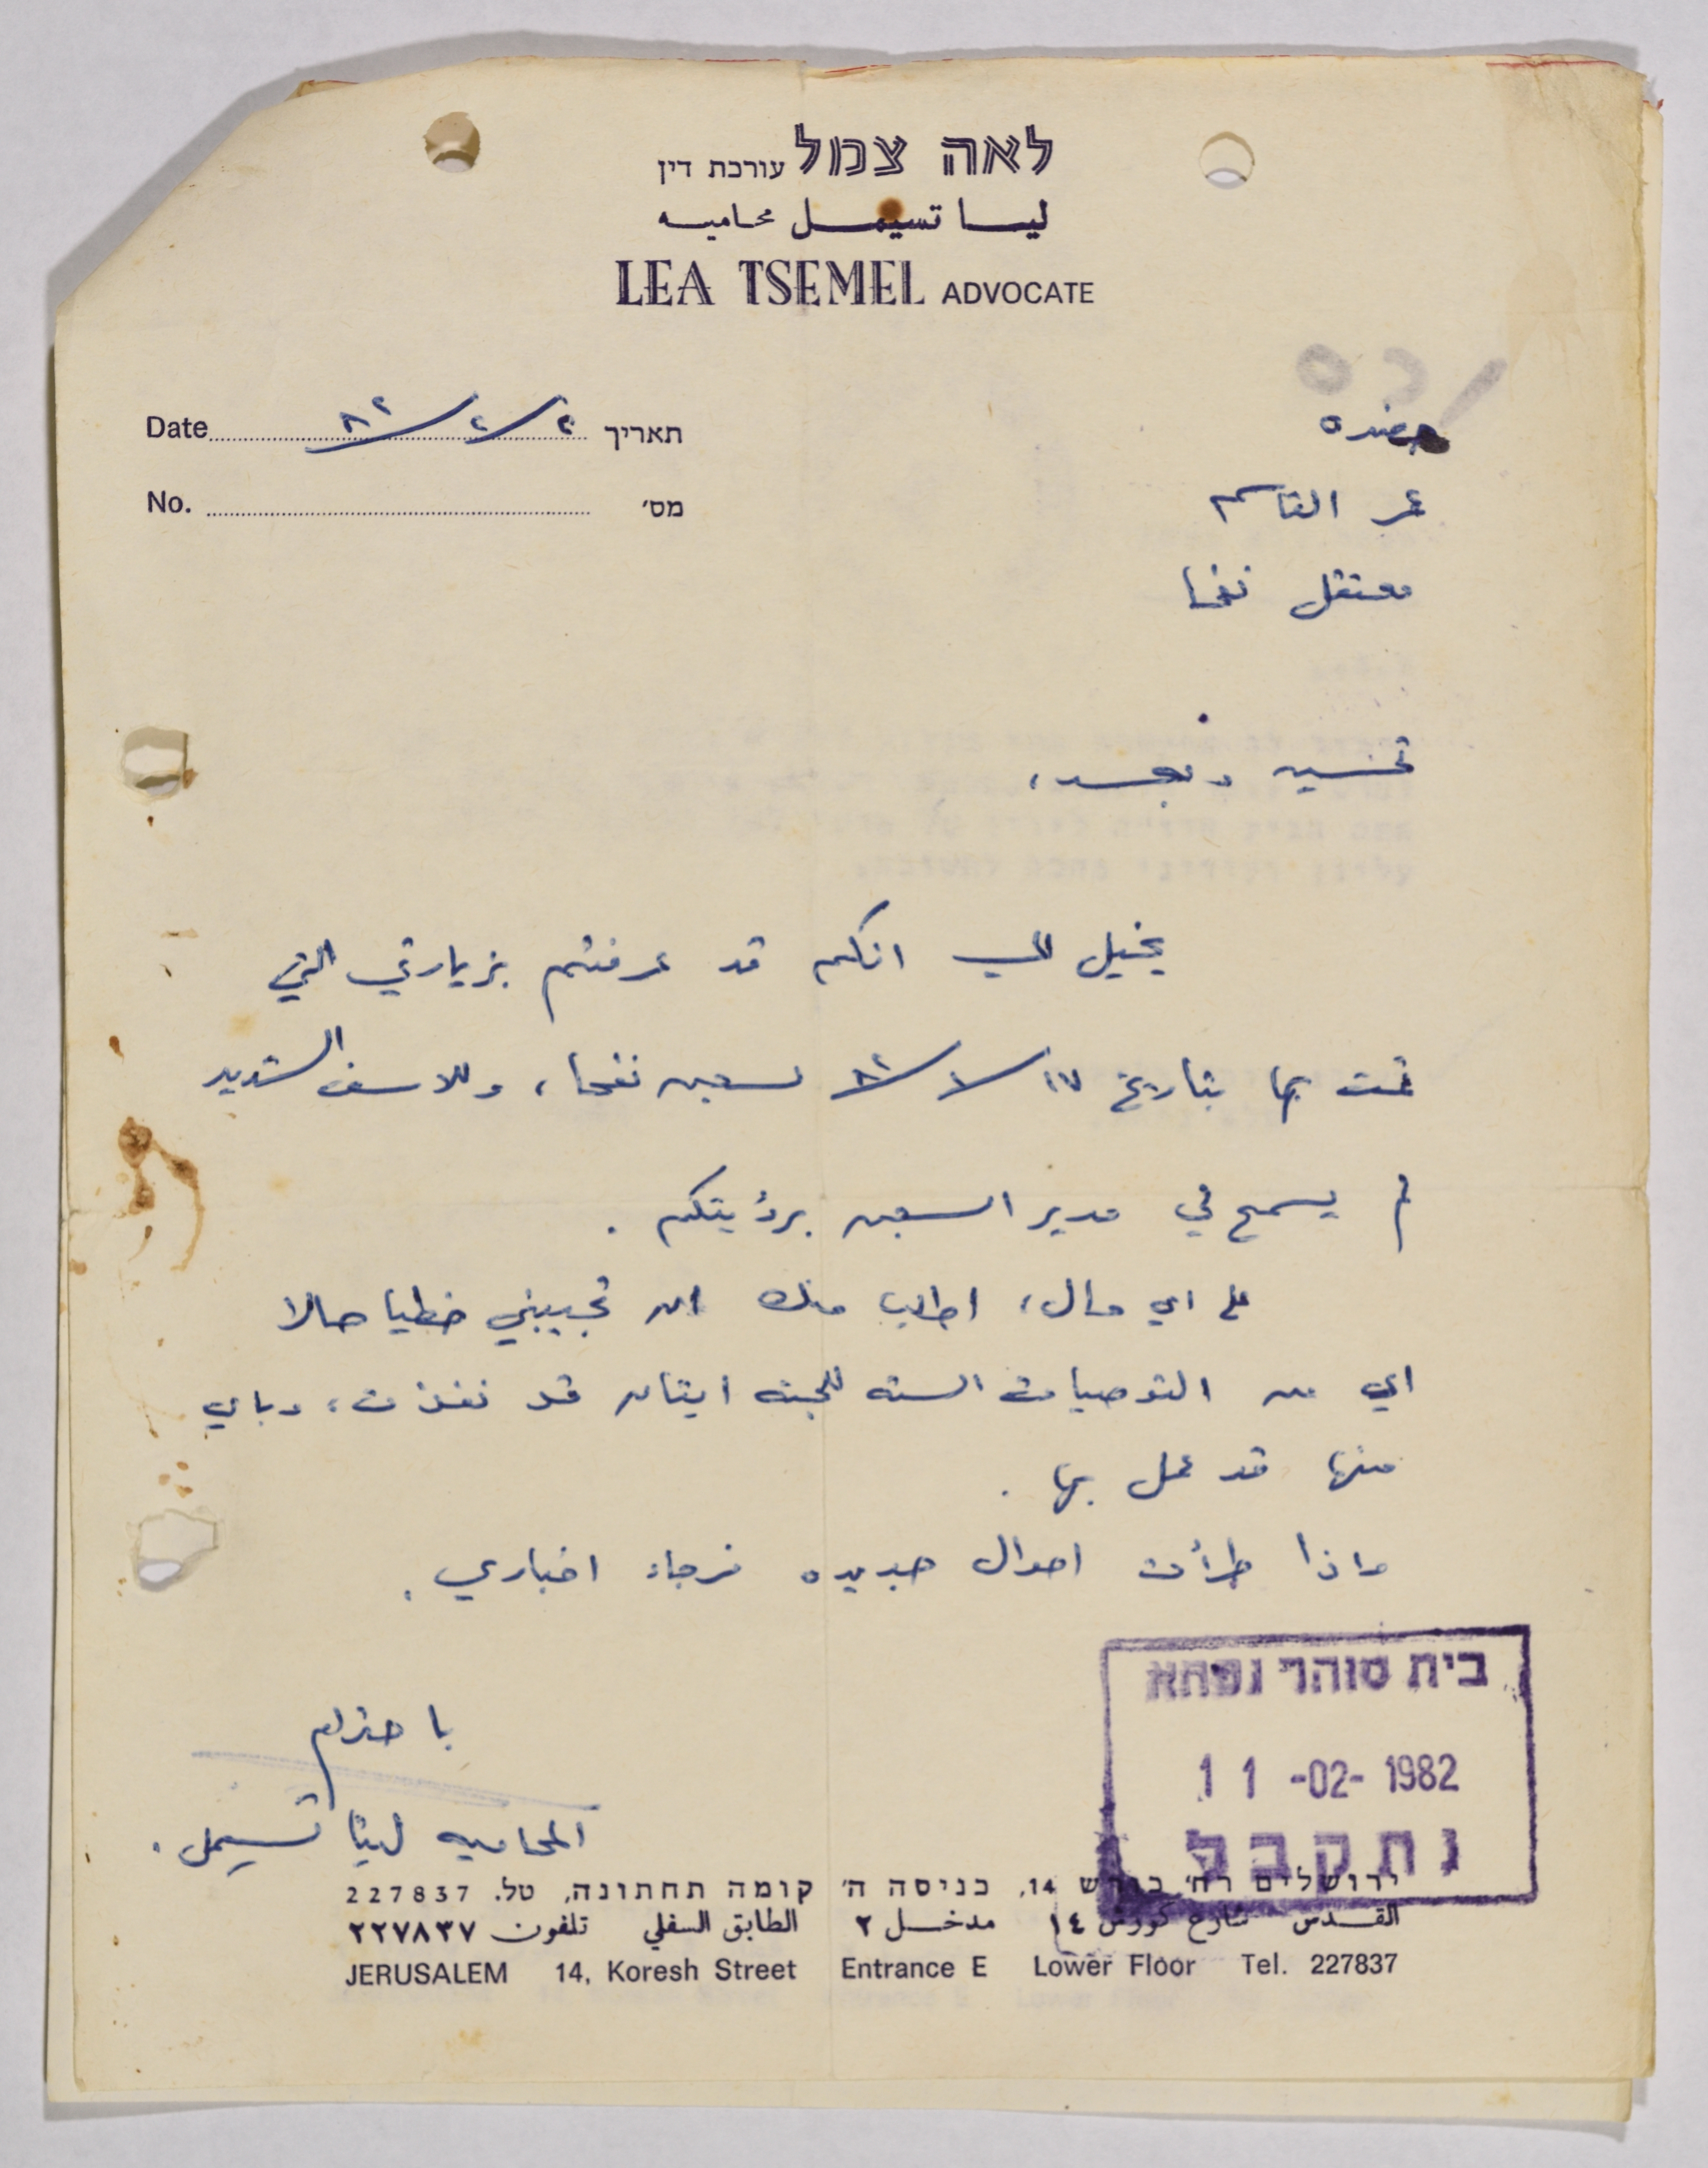 לאה צמל עורכת דין
ليا تسيمل محاميه
LEA TSEMEL ADVOCATE
Date ٢/٢/٨٢ תאריך
No. מס׳
حضرة
عمر القاسم
معتقل نفحا
تحية وبعد،
يخيل لي انكم قد عرفتم بزيارتي التي
قمت بها بتاريخ ١٧/١/٨٢ لسجن نفحا، وللاسف الشديد
لم يسمح لي مدير السجن برؤيتكم.
على اي حال، اطلب منك ان تجيبني خطيا حالا
اي من التوصيات الستة للجنة ايتان قد نفذت، وباي
منها قد عمل بها.
واذا طرأت احوال جديده فرجاء اخباري.
باحترام
المحاميه ليئا تسيمل.
בית סוהר נפחא
11 -02- 1982
נתקבל
ירושלים רח׳ כורש 14, כניסה ה׳ קומה תחתונה, טל. 227837
القدس شارع كورش ١٤ مدخل ٢ الطابق السفلي تلفون ٢٢٧٨٣٧
JERUSALEM 14, Koresh Street Entrance E Lower Floor Tel. 227837